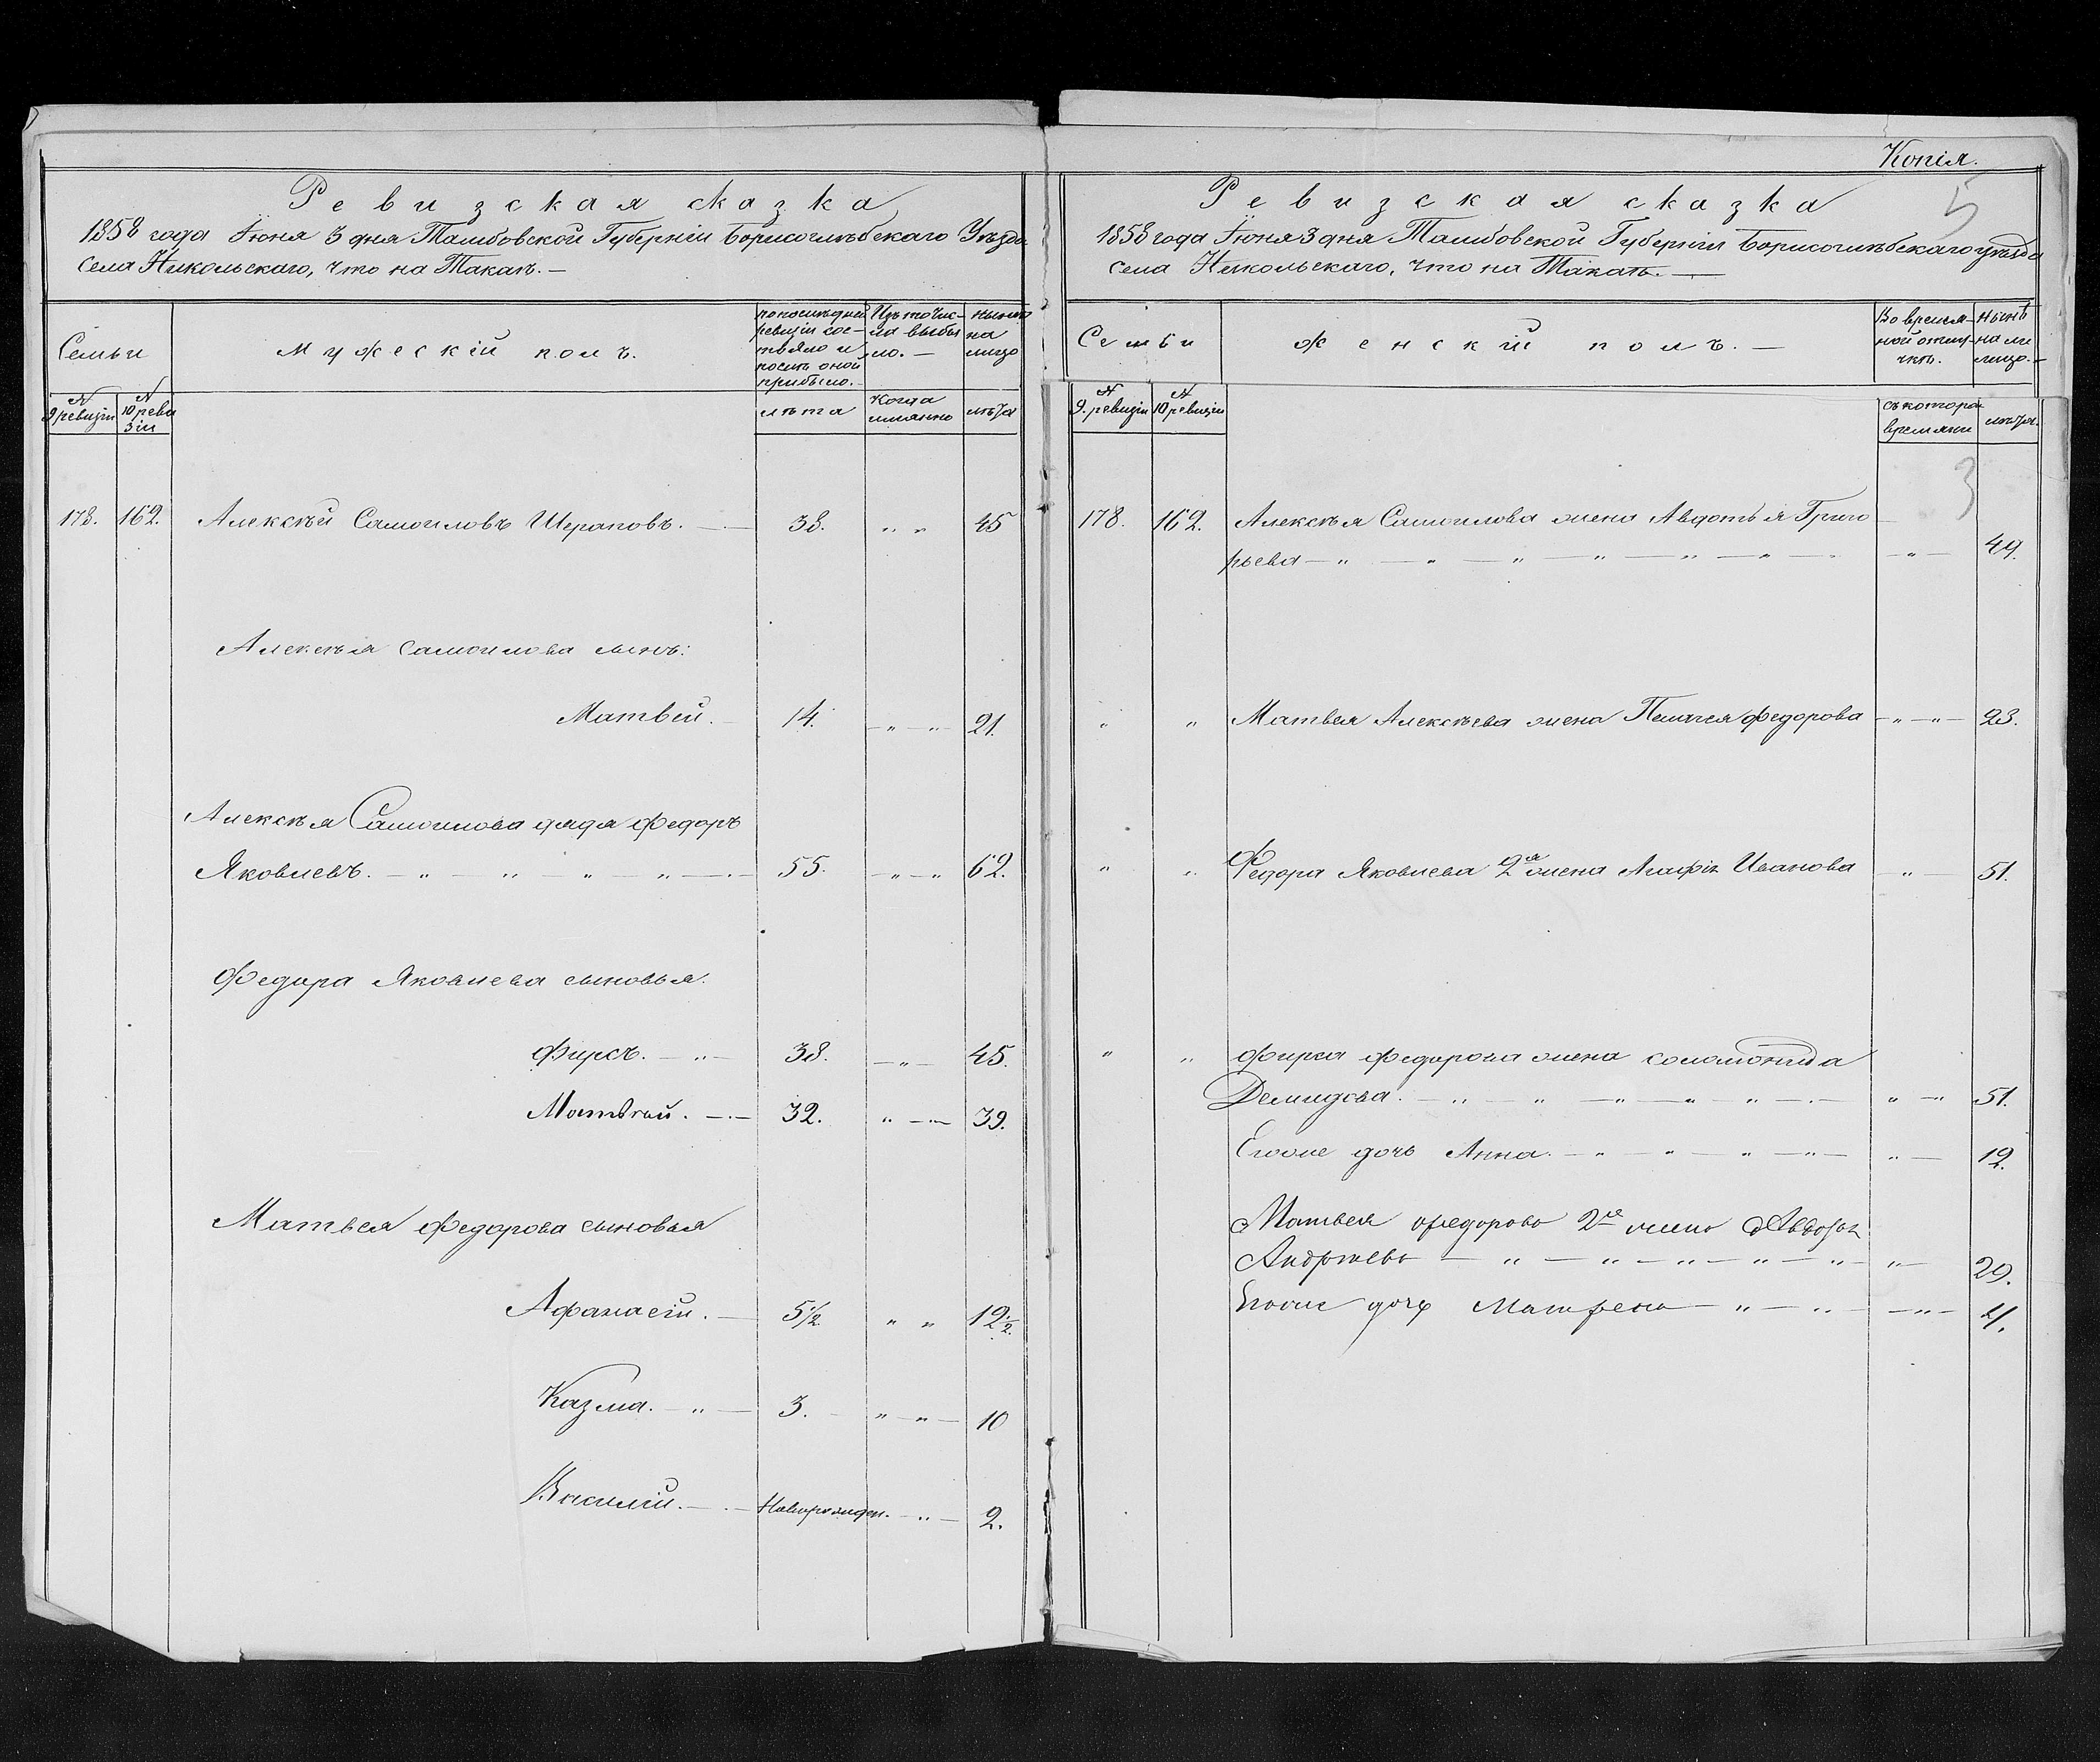 Копія.
5
Ревизская сказка
1858 года Іюня 3 дня Тамбовской Губерніи Борисоглѣбскаго Уѣзда
села Никольскаго, что на Такаѣ. —
Семьи
Мужескій полъ.
по послѣдней ревизіи состояло и послѣ оной прибыло.
Изъ того числа выбыло. —
нынѣ на лицо
№ 9 ревизіи
№ 10 ревизіи
лѣта
Когда имянно
лѣта
178. 162. Алексѣй Самоиловъ 38. „ „ 45
Алексѣя Самоилова сынъ:
Матвей. — 14. — „ — „ — 21.
Алексѣя Самоилова дядя Федоръ
Яковлевъ. — „ — „ — „ — „ — 55. — „ — „ 62.
Федора Яковлева сыновья.
Фирсъ. — „ — 38. — „ — 45.
Матвей. — „ — 32. „ — „ — 39.
Матвея Федорова сыновья
Афанасій. — 5½. „ „ 12½.
Казма. — „ — 3. — „ — „ — 10
Василій. — „ — Новорожден. — „ — 2.
Ревизская сказка
1858 года Іюня 3 дня Тамбовской Губерніи Борисоглѣбскаго уѣзда
села Никольскаго, что на Такаѣ. —
Семьи
Женскій полъ. —
Во временной отлучкѣ.
Нынѣ на лицо. —
№ 9. ревизіи
№ 10 ревизіи
съ котора времяни
лѣта.
3
178. 162. Алексѣя Самоилова жена Авдотья Григо
рьева — „ — „ — „ — „ — „ — „ — — „ — 49.
„ „ Матвея Алексѣева жена Пелагея Федорова — „ — „ — 23.
„ „ Федора Яковлева 2я жена Агафья Иванова — „ — 51.
„ „ Фирса Федорова жена Соломонида
Демидова. — „ — „ — „ — „ — „ — „ — „ — „ 51.
Егоже дочь Анна. — „ — „ — „ — „ — „ — 12.
Матвея Федорова 2я жена Авдотья
Андреева — „ — „ — „ — „ — „ — „ — 29.
Егоже дочь Матрена — „ — „ — — „ — 4.